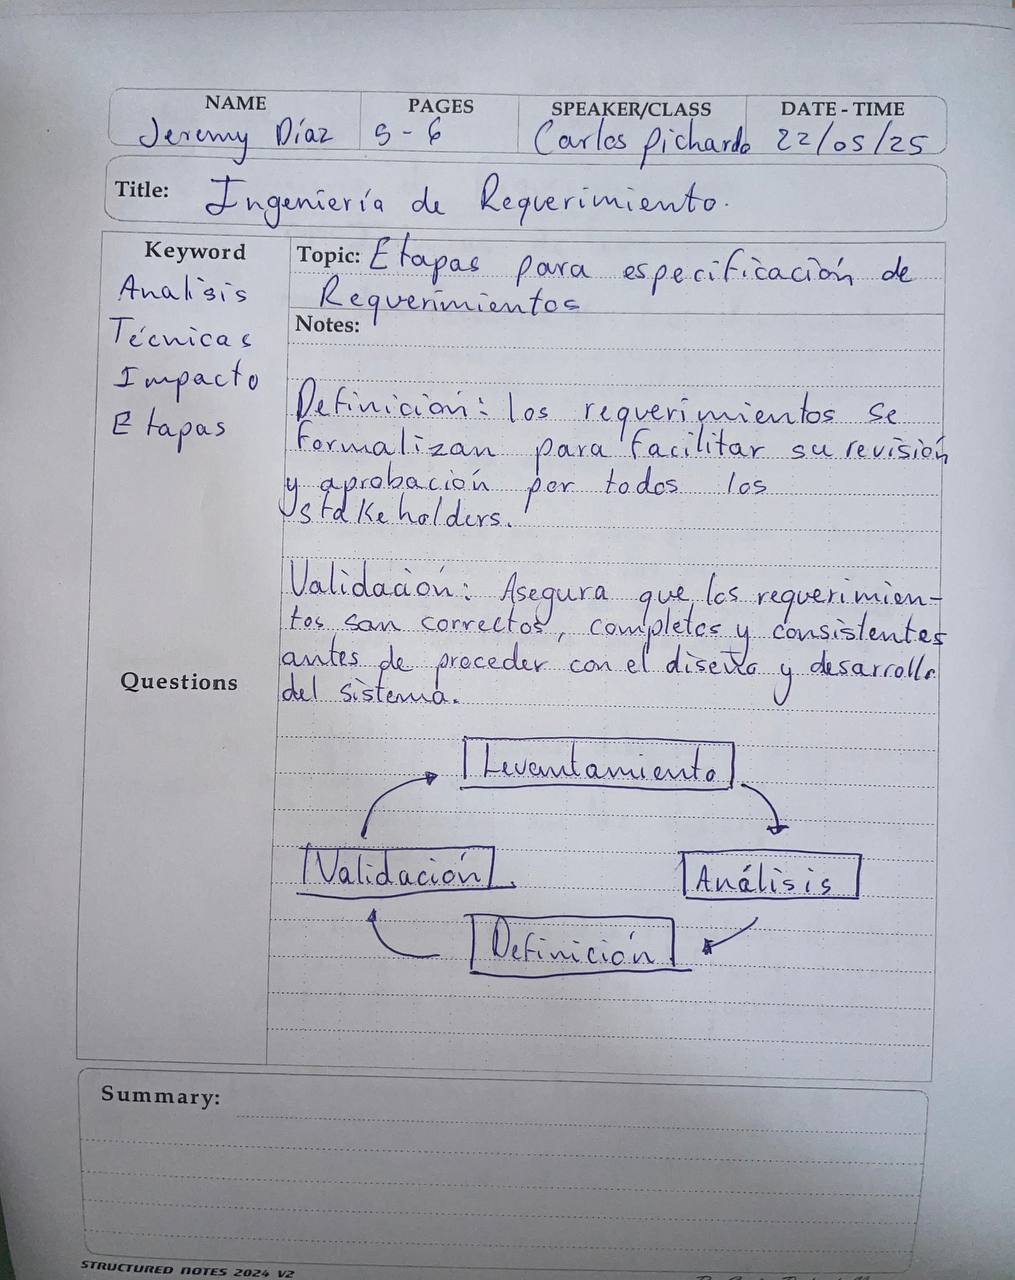 NAME PAGES SPEAKER/CLASS DATE - TIME
Jeremy Díaz 5 - 6 Carlos Pichardo 22/05/25
Title: Ingeniería de Requerimiento.
Keyword
Analisis
Técnicas
Impacto
Etapas
Questions
Topic: Etapas para especificación de
Requerimientos
Notes:
Definición: los requerimientos se
formalizan para facilitar su revisión
y aprobación por todos los
stakeholders.
Validación: Asegura que los requerimien-
tos san correctos, completos y consistentes
antes de proceder con el diseño y desarrollo
del sistema.
Levantamiento
Validación
Análisis
Definición
Summary:
STRUCTURED NOTES 2024 V2